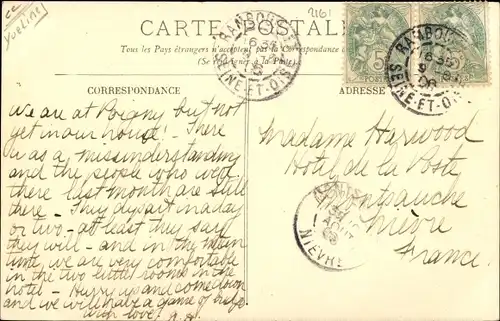 cc
Yveline
2161
CARTE POSTALE
Tous les Pays étrangers n'acceptent pas la Correspondance
(Se renseigner à la Poste).
CORRESPONDANCE
ADRESSE
RAMBOUILLET
SEINE-ET-OISE
RAMBOUILLET
SEINE-ET-OISE
We are at Poigny but not
yet in our house! - There
was a misunderstanding
and the people who were
there last month are still
there - They depart in a day
or two - at least they say
they will - and in the mean
time, we are very comfortable
in the two little rooms in the
hotel - Hurry up and come down
and we will have a game of
with love.
Madame Harwood
Hotel de la Poste
Montsauche
Nièvre
France.
NIEVRE